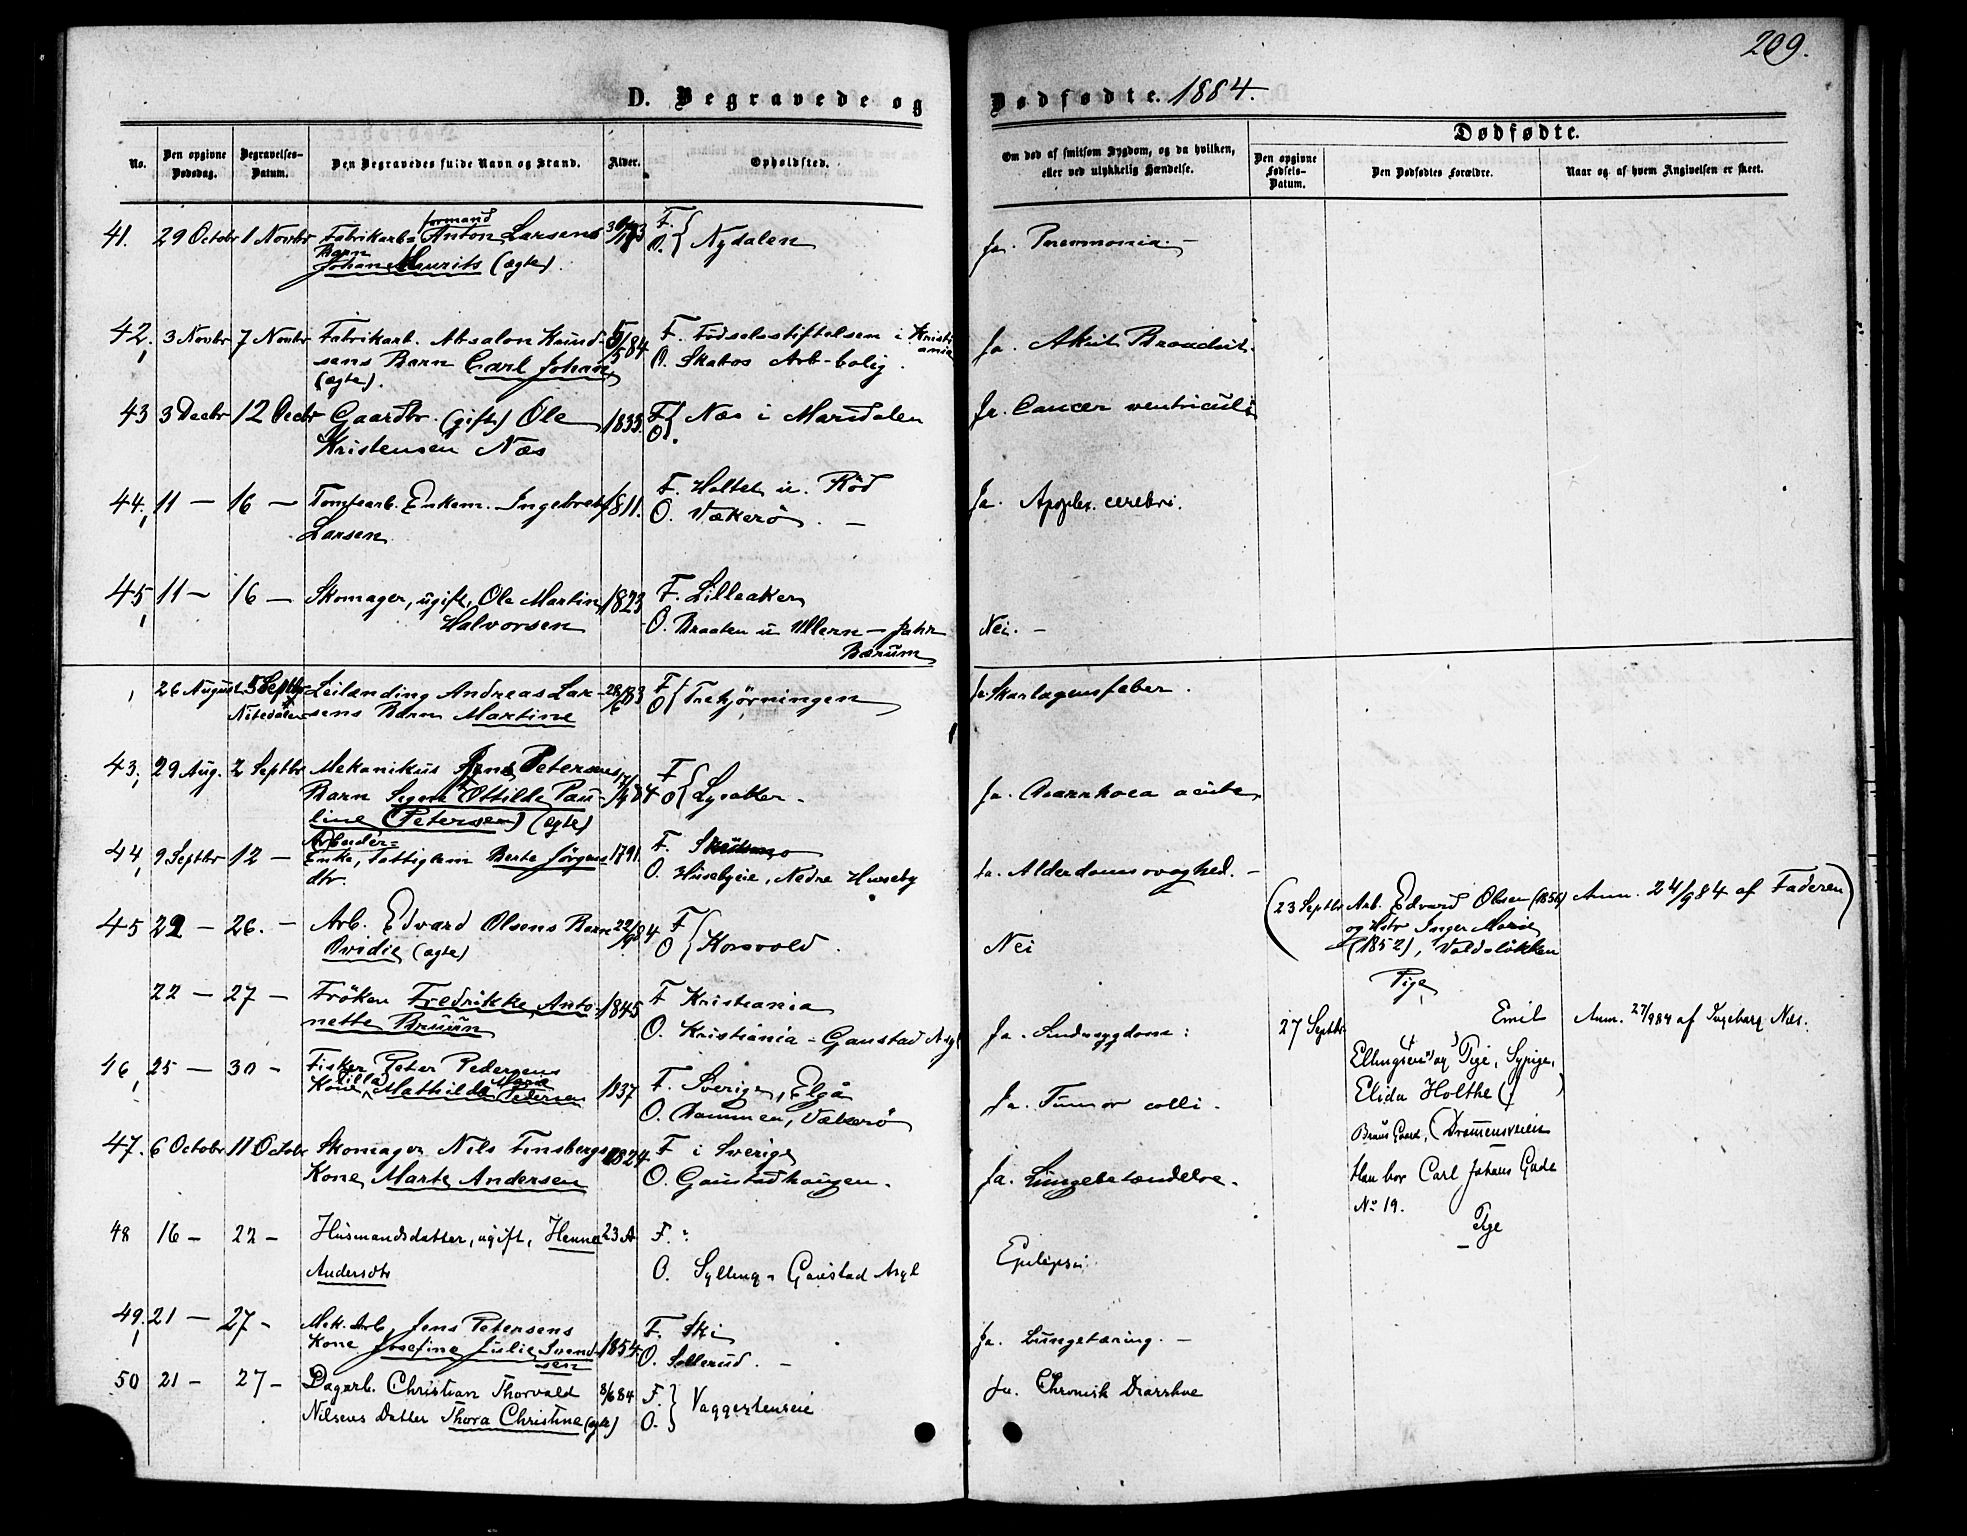 209.
D. Begravede og Dødfødte. 1884.
No.
Den opgivne Dødsdag.
Begravelses-Datum.
Den Begravedes fulde Navn og Stand.
Alder.
Opholdsted.
Om død af smitsom Sygdom, og da hvilken, eller ved ulykkelig Hændelse.
Dødfødte.
Den opgivne Fødsels-Datum.
Den Dødfødtes Forældre.
Naar og af hvem Angivelsen er skeet.
41. 29 Octobr 1 Novbr Fabrikarb. formand Anton Larsens F. O. } Nydalen Ja. Pneumonia. –
Barn
Johan Laurits (ægte).
42. 3 Novbr 7 Novbr Fabrikarb. Absalon Knud- 5/5 84 F. Fødselsstiftelsen i Kristiania
sens Barn Carl Johan O. Skabos Arb-bolig. Ja. Akut Bronchit.
(ægte).
43 3 Decbr 12 Decbr Gaardbr. (gift) Ole 1833. F O. } Næs i Maridalen Ja. Cancer ventriculi
Kristensen Næs
44. 11 – 16 – Tomtearb. Enkem. Ingebret 1811. F. Holtet u. Röd Ja. Apoplex. cerebri.
Larsen O. Vækerö. –
45, 11 – 16 – Skomager, ugift, Ole Martin 1823 F. Lilleaker
Halvorsen O. Braaten u Ullern – Nei. –
Bærum
26 August 5 Septbr Leilænding Andreas Lar- 28/6 83 F O } Trehjørningen Ja. Skarlagensfeber.
Nitedalen sens Barn Martine
43, 29 Aug. 2 Septbr Mekanikus Jens Petersens
Barn Signe Ottilde Pau- F O { Lysaker. Ja. Diarrhoea acuta
line (Petersen) (ægte)
44, 9 Septbr 12 – Arbeider-
Enke, Fattiglem Berte Jørgens- 1791. F.
dtr. O. Husebyeie, Nedre Huseby Ja. Alderdomssvaghed. –
45 22 – 26. – Arb. Edvard Olsens Barn 22/9 84 F O { Korsvold. Nei
Ovidie (ægte)
(23 Septbr Arb. Edvard Olsen (1856) Anm. 24/9 84 af Faderen)
og Hstr Inger Marie
(1852), Voldsløkken
Pige
22 – 27 – Frøken Fredrikke Anto- 1845 F Kristiania
nette Bruun O. Kristiania – Gaustad Asyl Ja. Sindssygdom:
27 Septbr Emil Anm. 27/9 84 af Ingeborg Næs.
Ellingsen og Pige, Sypige,
Elida Holthe ( )
Braus Gaard, (Drammensveien
Han bor Carl Johans Gade
No 19.
Pige
46, 25 – 30 – Fisker Peter Pedersens
Kone Milla Mathilde Marie Petersen 1837 F. Sverige, Elgå
O. Dammen, Vækerö Ja. Tumor colli.
47. 6 Octobr 11 Octobr Skomager Nils Finsbergs 1824 F i Sverige
Kone Marte Andersen O. Gaustadhaugen. Ja. Lungebetændelse.
48 16 – 22 – Husmandsdatter, ugift, Henne 23 A F. "
Andersdtr O. Sylling – Gaustad Asyl Epilepsi.
49. 21 – 27 – Mek. Arb. Jens Petersens F. Ski
Kone Josefine Julie Svend- 1854. O. Sollerud. – Ja. Lungetæring. –
sen
50 21 – 27 – Dagarb. Christian Thorvald 8/6 84 F. O. } Vaggestenseie Ja. Chronisk Diarrhoe
Nilsens Datter Thora Christine (ægte)